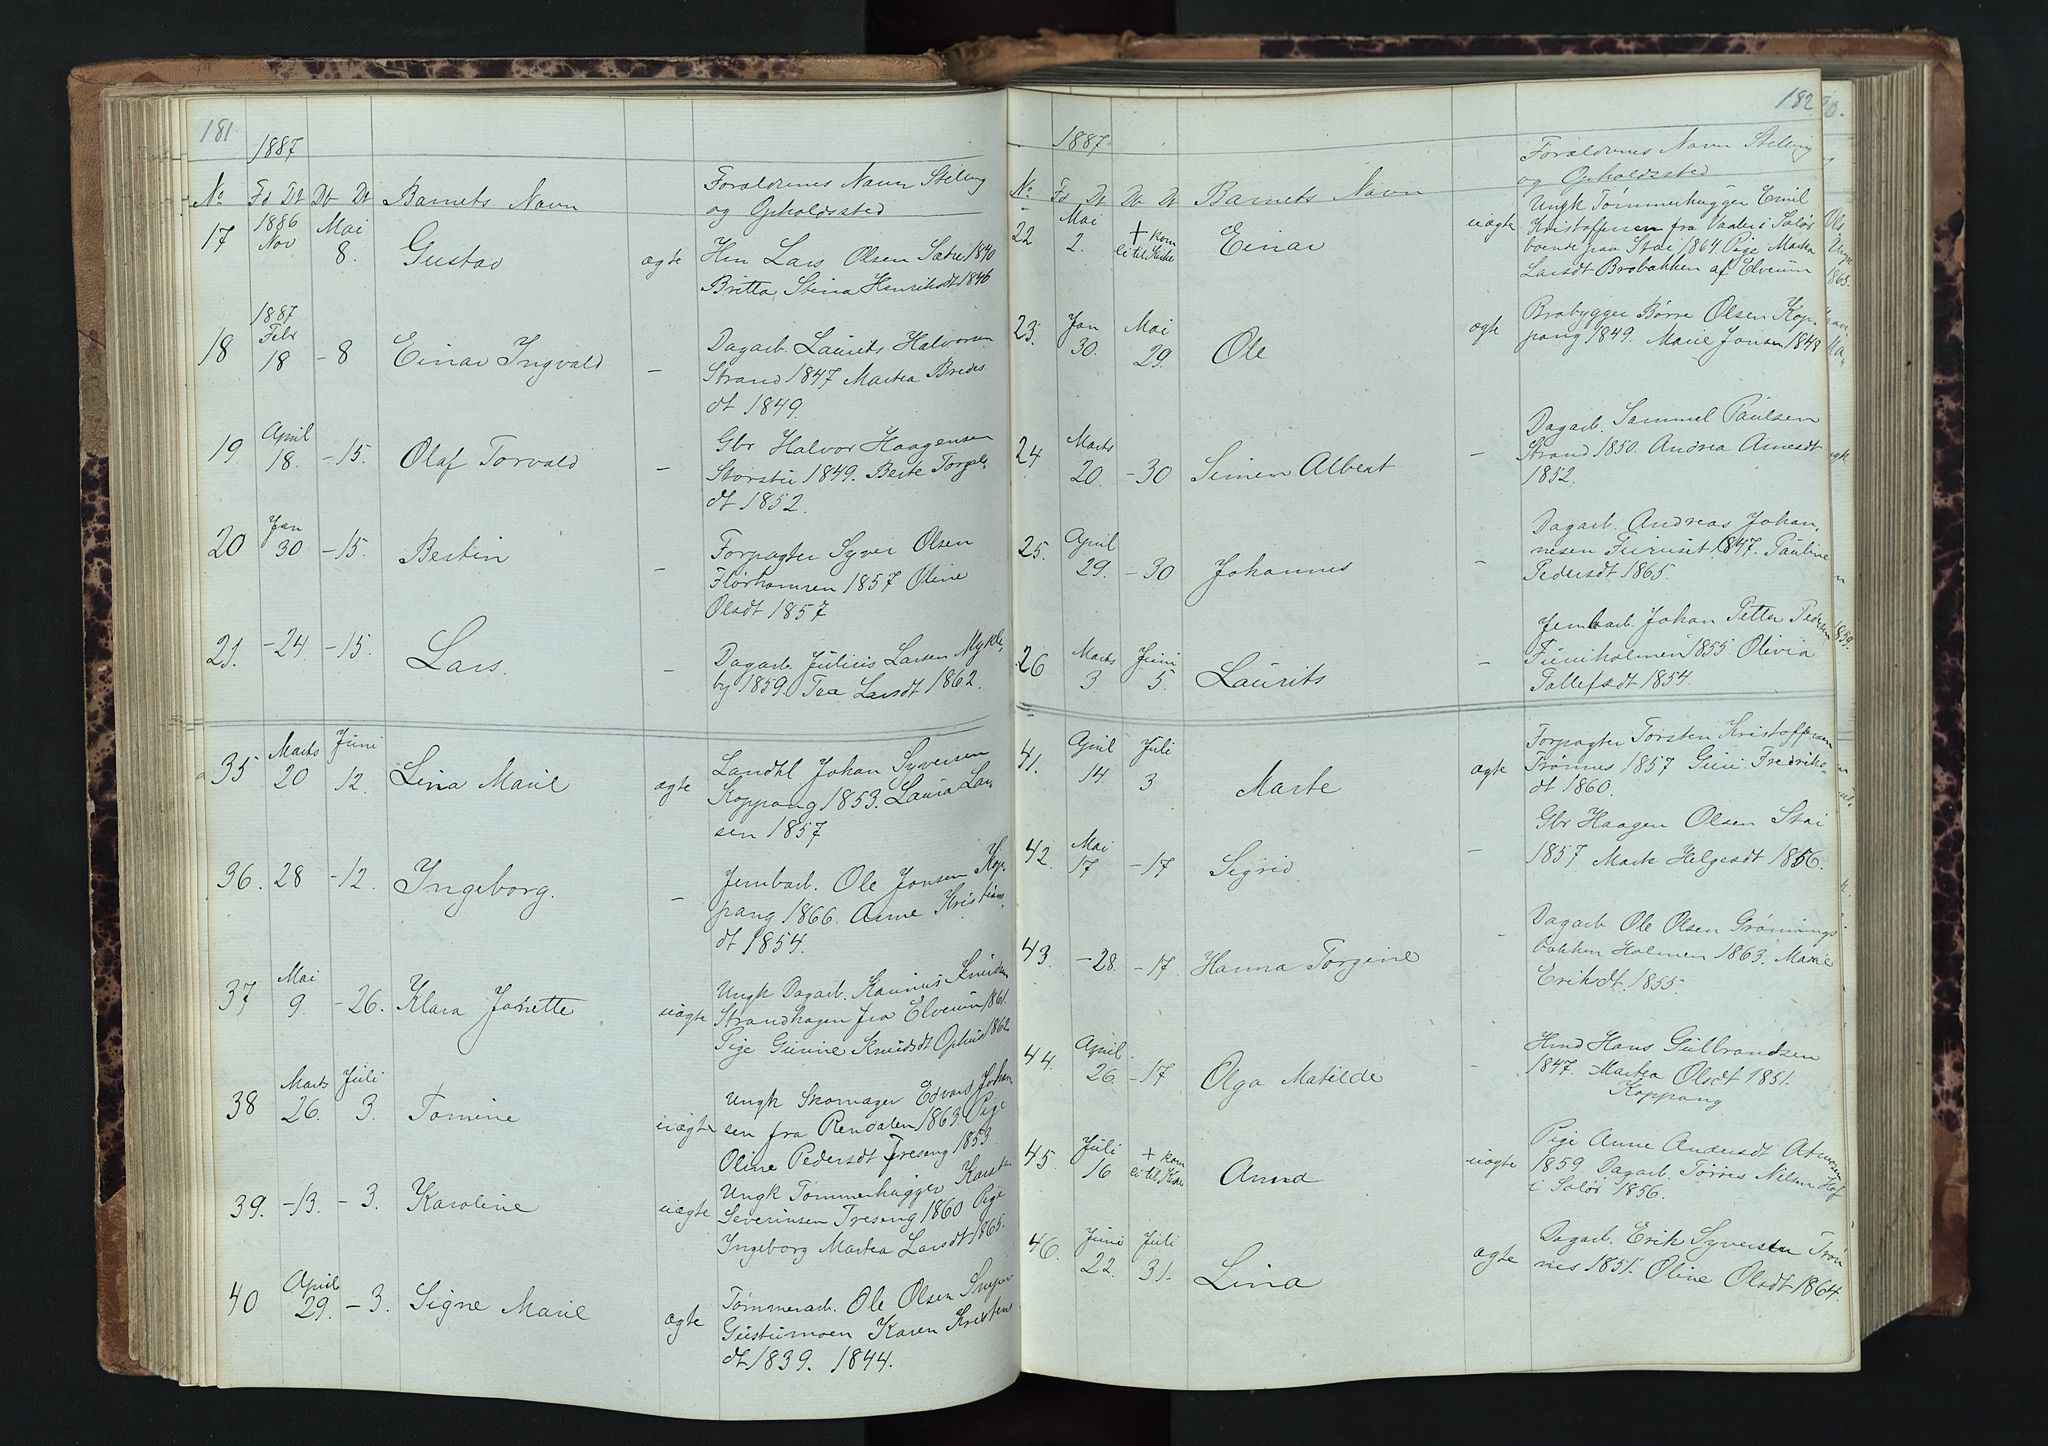 181
1887
No Fd Dt Db Dt Barnets Navn
Forældrenes Navn Stilling
og Opholdssted
17 1886 Nov Mai 8. Gustav ægte
Hm Lars Olsen Sætre 1840
Britta Stina Henriksdt 1846
18 1887 Febr 18 - 8 Einar Ingvald -
Dagarb. Laurits Halvorsen
Strand 1847 Martea Bredes
dt 1849.
19 April 18. - 15. Olaf Torvald -
Gbr Halvor Haagensen
Storstu 1849. Berte Torgals
dt 1852.
20 Jan 30 - 15. Bertin -
Forpagter Syver Olsen
1857 Oline
Olsdt 1857
21. - 24 - 15. Lars. -
Dagarb. Julius Larsen Mykle
by 1859. Tea Larsdt 1862.
35 Marts 20 Juni 12. Lina Marie ægte
Landhl Johan Syversen
Koppang 1853. Laura Lar
sen 1857
36. 28 - 12. Ingeborg. -
Jernbarb. Ole Jonsen Kop
pang 1866. Anne Kristians
dt 1854.
37 Mai 9. - 26. Klara Jonette uægte
Ungk Dagarb. Knudsen
Strandhagen fra Elverum 1861.
Pige Gunine Knudsdt Ophus 1862
38 Marts 26. Juli 3. Tomine uægte
Ungk Skomager Edvard Johan
sen fra Rendalen 1863. Pige
Oline Pedersdt Treseng 1853
39. - 13. - 3. Karoline uægte
Ungk Tømmerhugger
Severinsen Treseng 1860 Pige
Ingeborg Martea Larsdt 1865.
40 April 29. - 3. Signe Marie ægte
Tømmerarb. Ole Olsen
Gustumoen Karen Kristen
dt 1839. 1844.
182
1887
No Fd Dt Db Dt Barnets Navn
Forældrenes Navn Stilling
og Opholdssted
22 Mai 2. + kom ei til Kirke Einar uægte
Ungk Tømmerhugger Emil
Kristoffersen fra Vaaler i Solør
boende paa Stai 1864 Pige Martea
Larsdt Brobakken af Elverum
23. Jan 30. Mai 29. Ole ægte
Brobygger Børre Olsen Kop
pang 1849. Marie Jonsen 1848
24 Marts 20. - 30 Simen Albert -
Dagarb. Sammel Paulsen
Strand 1850. Andrea Arnesdt
1852.
25. April 29. - 30 Johannes -
Dagarb. Andreas Johan
nesen Furuset 1847. Pauline
Pedersdt 1865.
26 Marts 3. Juni 5. Laurits -
Jernbarb. Johan Petter Pedersen
Furuholmen 1855 Olivia
Tollefsdt 1854.
41. April 14. Juli 3 Marte ægte
Forpagter Torsten Kristoffersen
Trønnes 1857 Guri Fredriks
dt 1860.
42. Mai 17 - 17 Sigrid -
Gbr Haagen Olsen Stai
1857 Marte Helgesdt 1856.
43. - 28. - 17. Hanna Torgine -
Dagarb Ole Olsen Grønnings
bakken Holmen 1863. Marie
Eriksdt 1855.
44. April 26. - 17 Olga Matilde -
Hmd Hans Gulbrandsen
1847. Martea Olsdt 1851.
Koppang
45. Juli 16 + kom ei til Kirke Anna uægte
Pige Anne Andersdt Atneosen
1859. Dagarb. Tørres Nilsen Hof
i Solør 1856.
46. Juni 22. Juli 31. Lina ægte
Dagarb. Erik Syversen Trøn
nes 1851. Oline Olsdt 1864.